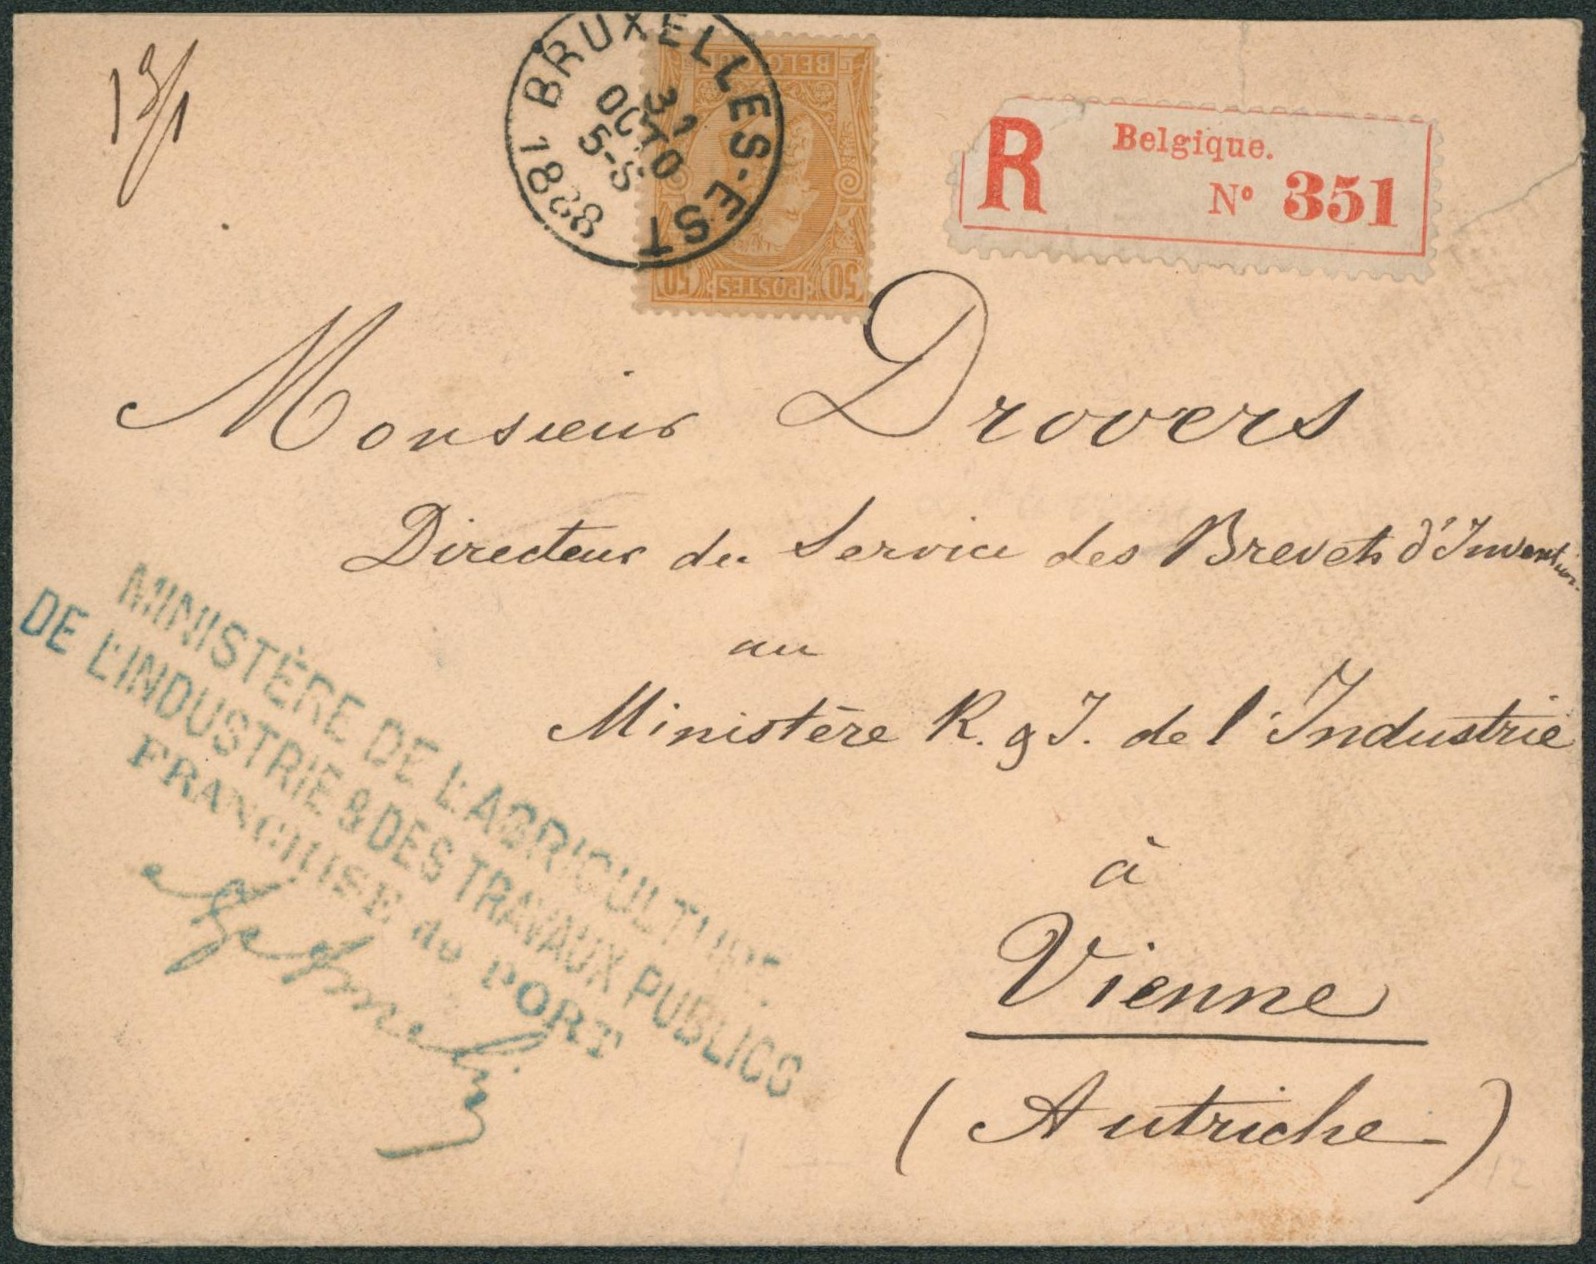 BRUXELLES-EST
31
OCTO
5-S
BELGIQUE
POSTES
50 50
R Belgique.
N° 351
Monsieur Drovers
Directeur du Service des Brevets d'Invention
au
Ministère R. & I. de l'Industrie
à
Vienne
(Autriche)
MINISTÈRE DE L'AGRICULTURE
DE L'INDUSTRIE & DES TRAVAUX PUBLICS
FRANCHISE de PORT